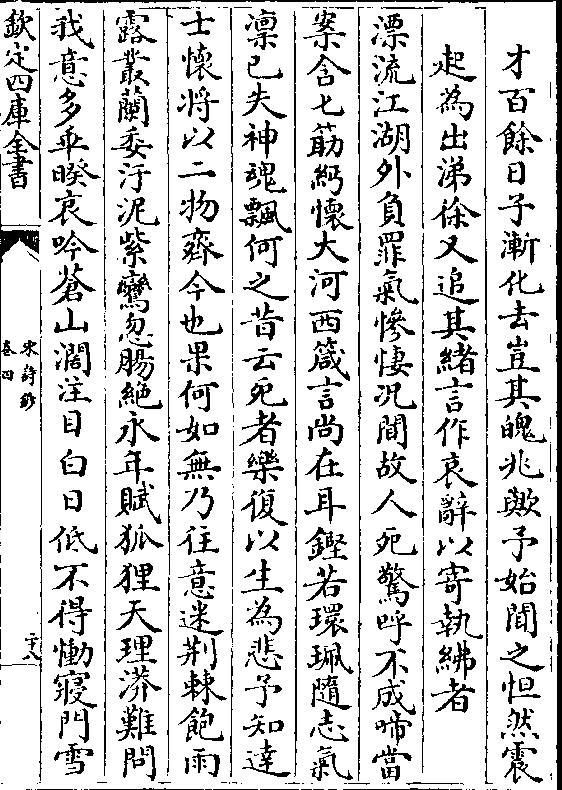 才百餘日子漸化去豈其魄兆歟予始聞之怛然震
起為出涕徐又追其緒言作哀辭以寄執紼者
漂流江湖外負罪氣慘悽况聞故人死驚呼不成啼當
案含匕筯紆懷大河西箴言尚在耳鏗若環珮隨志氣
凛已失神魂飄何之昔云死者樂復以生為悲予知達
士懷将以二物齊今也果何如無乃往意迷荆棘飽雨
露叢蘭委汙泥紫鸞忽腸絶永年賦狐狸天理漭難問
我意多乖睽哀吟蒼山濶注目白日低不得慟寢門雪
欽定四庫全書
宋詩鈔
卷四
二十八